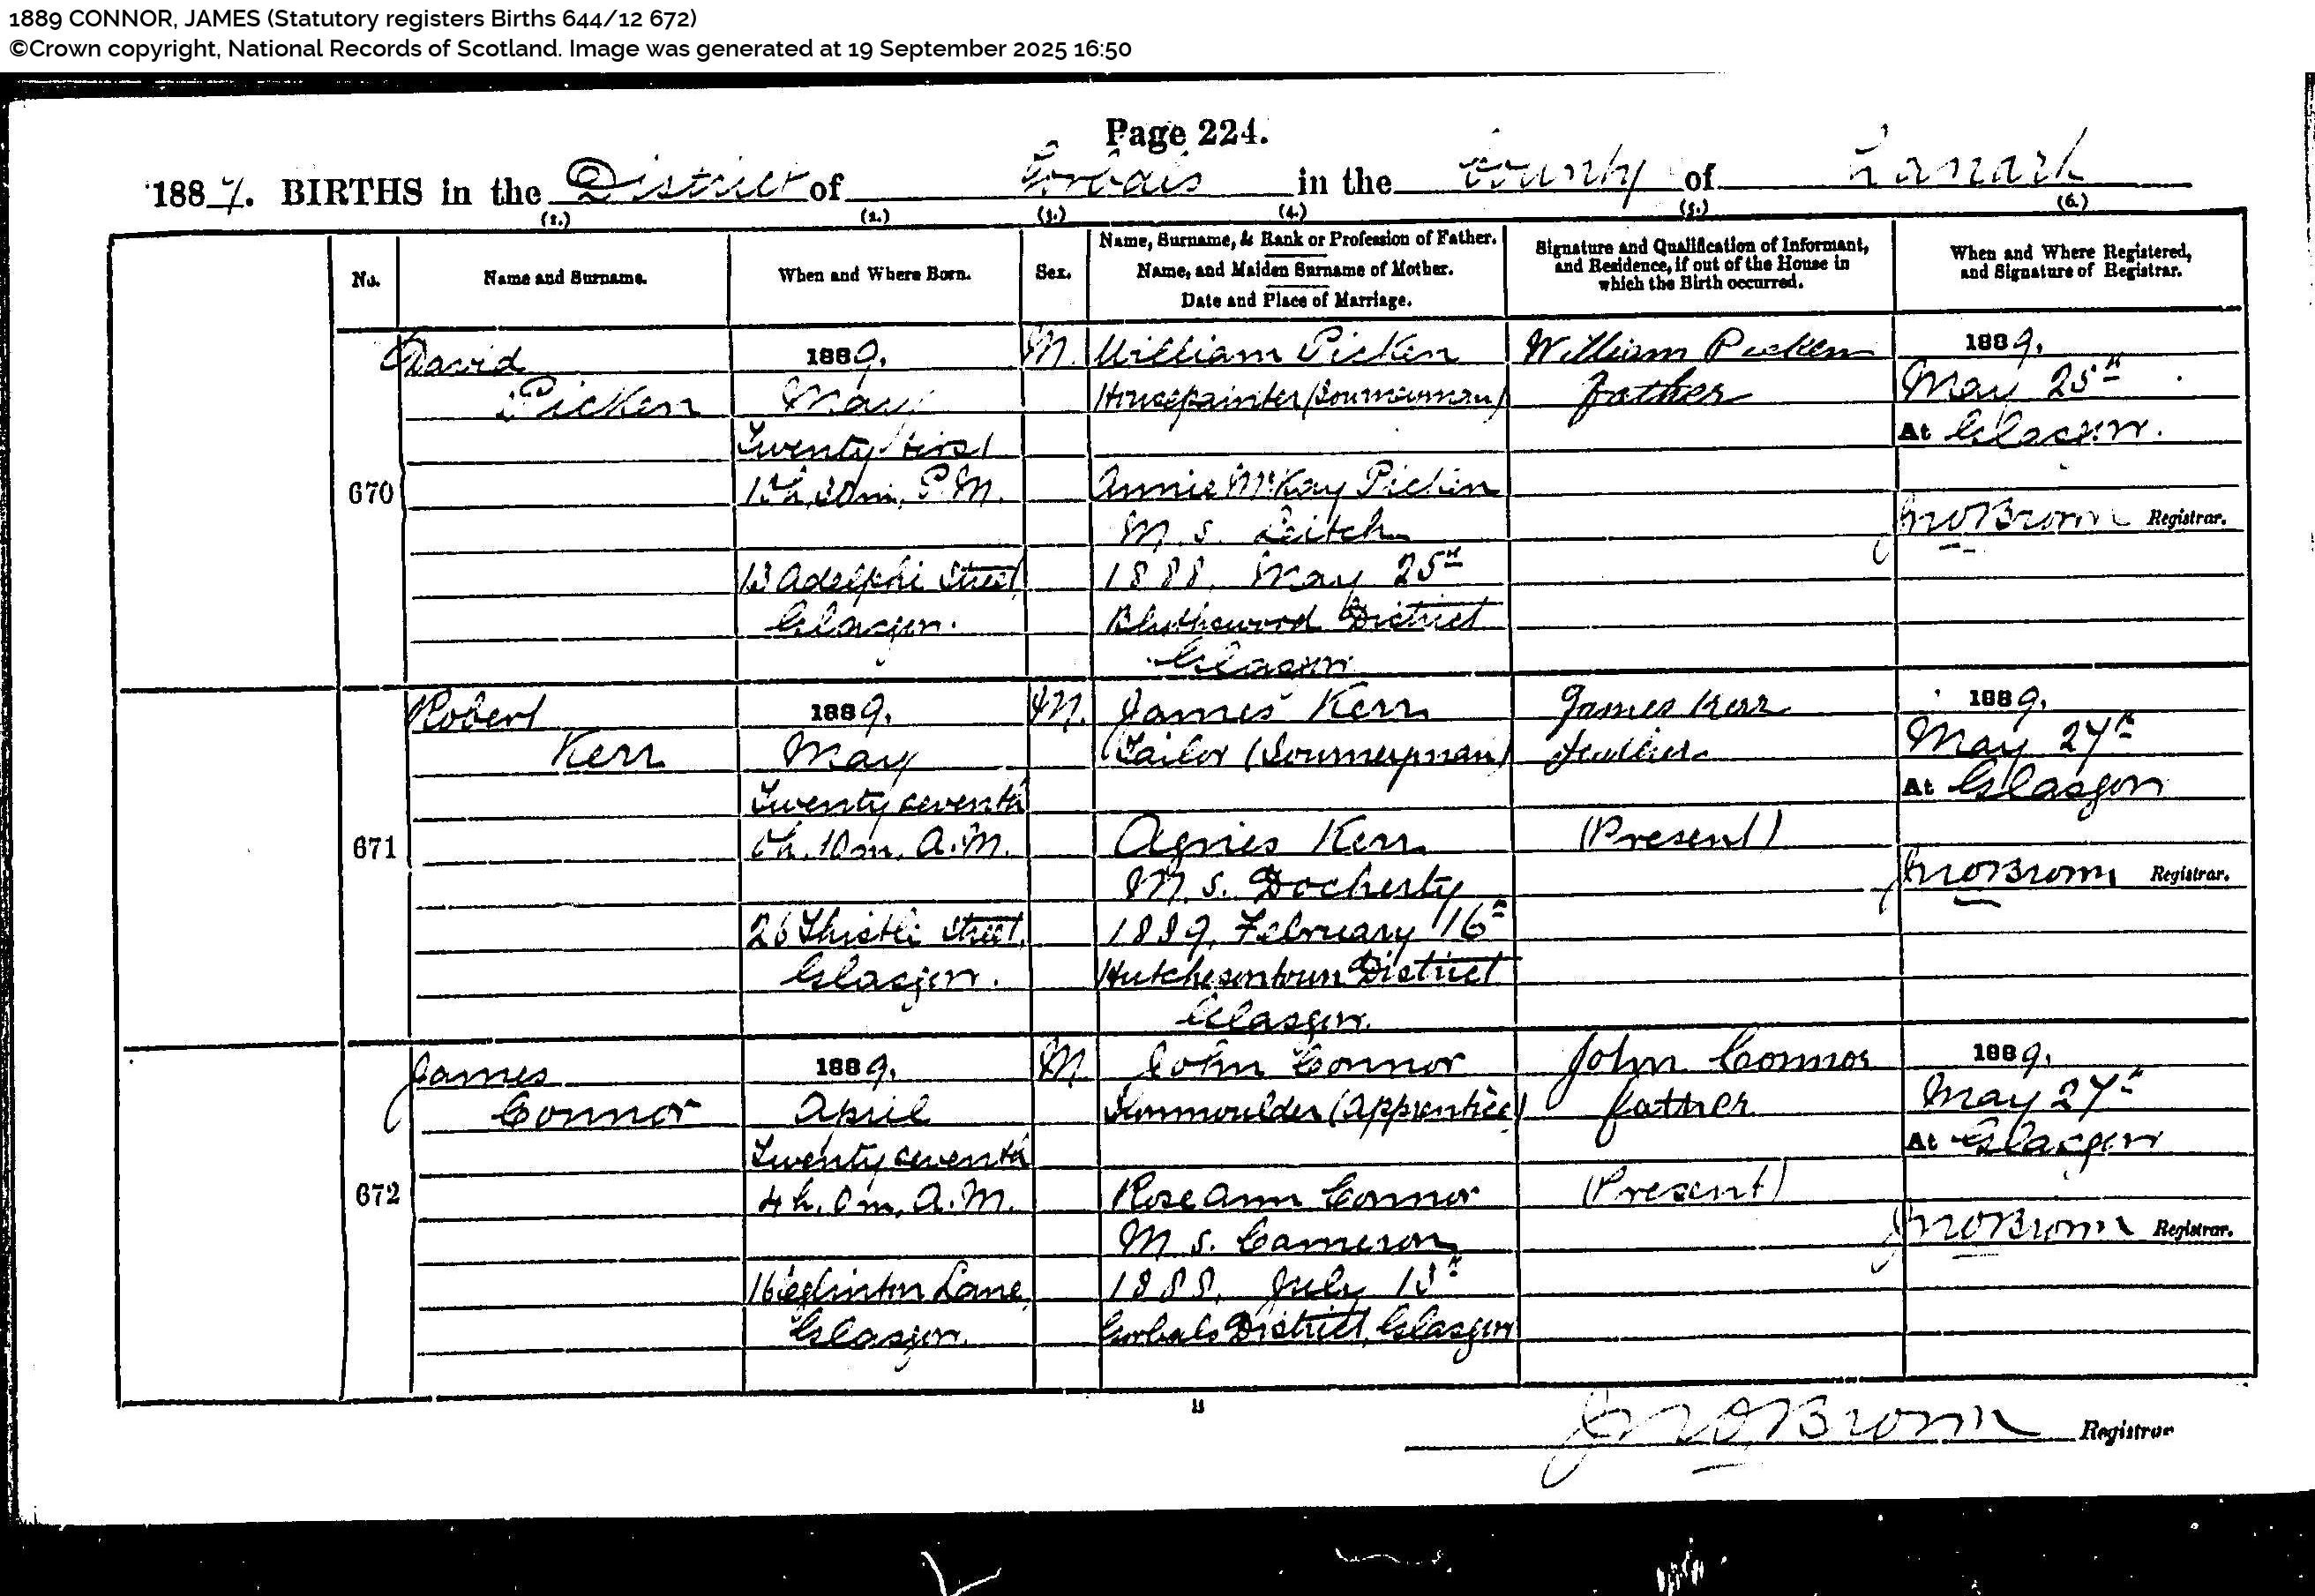 1889 CONNOR, JAMES (Statutory registers Births 644/12 672)
©Crown copyright, National Records of Scotland. Image was generated at 19 September 2025 16:50
Page 224.
1889. BIRTHS in the District of Gorbals in the County of Lanark
(1.) (2.) (3.) (4.) (5.) (6.)
No.
Name and Surname.
When and Where Born.
Sex.
Name, Surname, & Rank or Profession of Father.
Name, and Maiden Surname of Mother.
Date and Place of Marriage.
Signature and Qualification of Informant,
and Residence, if out of the House in
which the Birth occurred.
When and Where Registered,
and Signature of Registrar.
670
David
Picken
1889.
May
Twenty first
30m. P.M.
13 Adelphi Street
Glasgow.
M.
William Picken
Housepainter (Journeyman)
Annie McKay Picken
M.S. Leitch
1888, May 25th
Blythswood District
Glasgow
William Picken
father
1889.
May 25th
At Glasgow.
Jno Brown Registrar.
671
Robert
Kerr
1889.
May
Twenty seventh
h. 10m. A.M.
26 Thistle Street,
Glasgow.
M.
James Kerr
Tailor (Journeyman)
Agnes Kerr
M.S. Docherty
1889, February 16th
Hutchesontown District
Glasgow.
James Kerr
Father
(Present)
1889.
May 27th
At Glasgow
Jno Brown Registrar.
672
James
Connor
1889.
April
Twenty seventh
4h. 0m. A.M.
16 Eglinton Lane
Glasgow.
M
John Connor
Ironmoulder (Apprentice)
Rose Ann Connor
M.S. Cameron
1888, July 13th
Gorbals District, Glasgow
John Connor
father
(Present)
1889.
May 27th
At Glasgow
Jno Brown Registrar.
Jno Brown Registrar